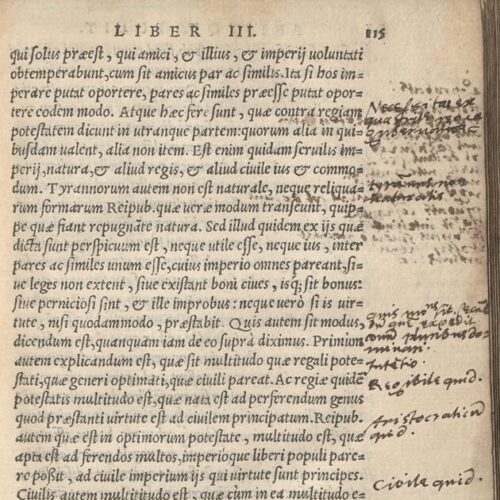 LIBER III. 115
qui solus præest, qui amici, & illius, & imperij voluntati
obtemperabunt, cum sit amicus par ac similis. Ita si hos im-
perare putat oportere, pares ac similes præesse putat opor-
tere eodem modo. Atque hæc fere sunt, quæ contra regiam
potestatem dicunt in utranque partem: quorum alia in qui-
busdam ualent, alia non item. Est enim quidam seruilis im-
perij, natura, & aliud regis, & aliud ciuile ius & commo-
dum. Tyrannorum autem non est naturale, neque reliqua-
rum formarum Reipub. quæ ueræ modum transeunt, quip-
pe quæ fiant repugnãte natura. Sed illud quidem ex ijs quæ
dicta sunt perspicuum est, neque utile esse, neque ius, inter
pares ac similes unum esse, cuius imperio omnes pareant, si-
ue leges non extent, siue existant boni ciues, isq; sit bonus:
siue perniciosi sint, & ille improbus: neque uerò si is uir-
tute, nisi quodammodo, præstabit. Quis autem sit modus,
dicendum est, quanquam iam de eo suprà diximus. Primùm
autem explicandum est, quæ sit multitudo quæ regali pote-
stati, quæ generi optimati, quæ ciuili pareat. Ac regiæ quidẽ
potestatis multitudo est, quæ nata est ad perferendum genus
quod præstanti uirtute est ad ciuilem principatum. Reipub.
autem quæ est in optimorum potestate, multitudo est, quæ
apta est ad ferendos multos, imperioque liberi populi pare-
re poßit, ad ciuile imperium ijs qui uirtute sunt principes.
Ciuilis autem multitudo est, quæ cum in ea multitudo e-
tyrannis non
naturalis
Regibile quid.
Aristocraticum
quid.
Ciuile quid.